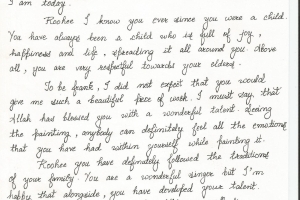 I am today.
Roohee I know you ever since you were a child.
You have always been a child who is full of joy,
happiness and life, spreading it all around you. Above
all, you are very respectful towards your elders.
To be frank, I did not expect that you would
give me such a beautiful piece of work. I must say, that
Allah has blessed you with a wonderful talent. Seeing
the painting, anybody can definitely feel all the emotions
that you have had within yourself while painting it.
Roohee you have definately followed the traditions
of your family. You are a wonderful singer but I'm
happy that alongside, you have developed your talent.